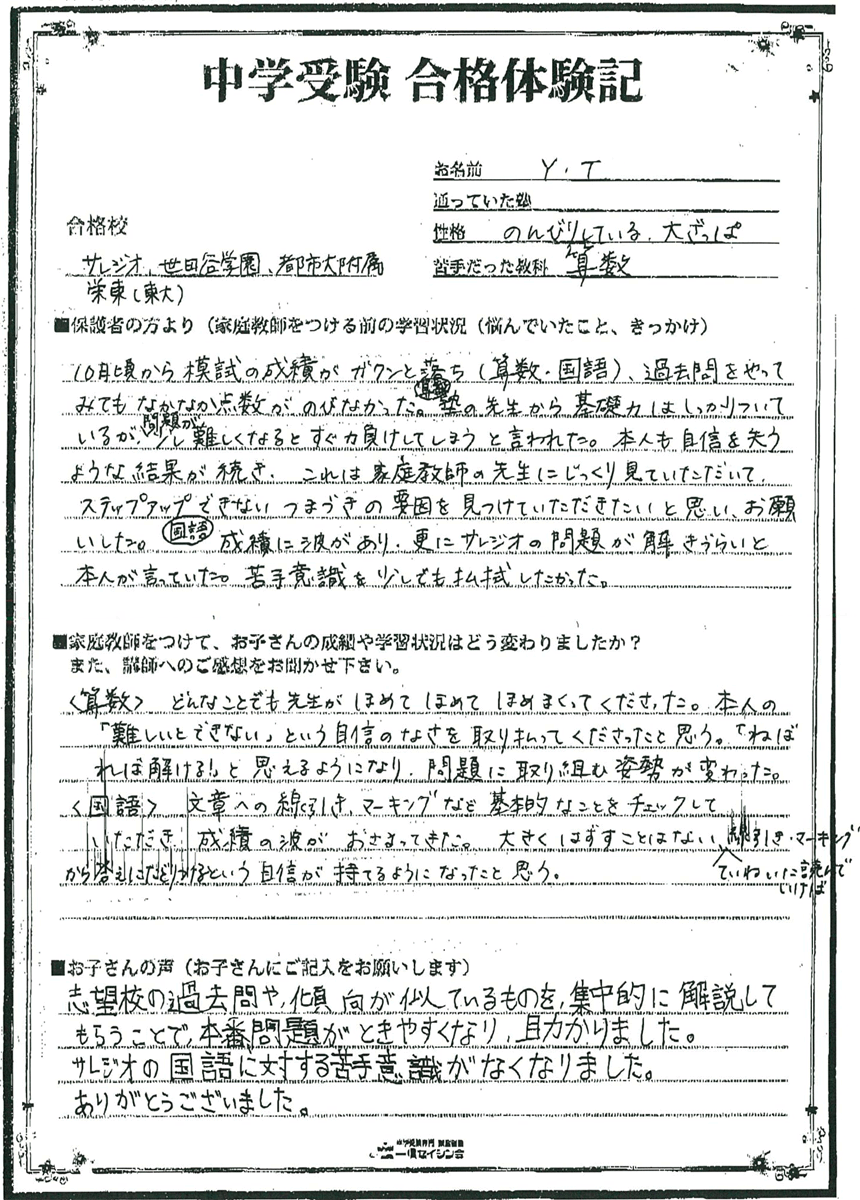 中学受験 合格体験記
お名前 Y.T
通っていた塾
性格 のんびりしている、大ざっぱ
苦手だった教科 算数
合格校
サレジオ、世田谷学園、都市大附属
栄東(東大)
■保護者の方より（家庭教師をつける前の学習状況（悩んでいたこと、きっかけ）
10月頃から模試の成績がガクンと落ち(算数・国語)、過去問をやって
みてもなかなか点数がのびなかった。算数 塾の先生から基礎力はしっかりついて
いるが、問題が少し難しくなるとすぐ力負けしてしまうと言われた。本人も自信を失う
ような結果が続き、これは家庭教師の先生にじっくり見ていただいて、
ステップアップできないつまづきの要因を見つけていただきたいと思い、お願
いした。国語 成績に波があり、更にサレジオの問題が解きづらいと
本人が言っていた。苦手意識を少しでも払拭したかった。
■家庭教師をつけて、お子さんの成績や学習状況はどう変わりましたか？
また、講師へのご感想をお聞かせ下さい。
〈算数〉 どんなことでも先生がほめてほめてほめまくってくださった。本人の
「難しいとできない」という自信のなさを取り払ってくださったと思う。「ねば
れば解ける!」と思えるようになり、問題に取り組む姿勢が変わった。
〈国語〉 文章への線引き、マーキングなど基本的なことをチェックして
いただき、成績の波がおさまってきた。大きくはずすことはない、線引き・マーキング
ていねいに読んで
いけば
から答えにたどりつけるという自信が持てるようになったと思う。
■お子さんの声（お子さんにご記入をお願いします）
志望校の過去問や、傾向が似ているものを、集中的に解説して
もらうことで、本番問題がときやすくなり、助かりました。
サレジオの国語に対する苦手意識がなくなりました。
ありがとうございました。
中学受験専門 家庭教師
一橋セイシン会